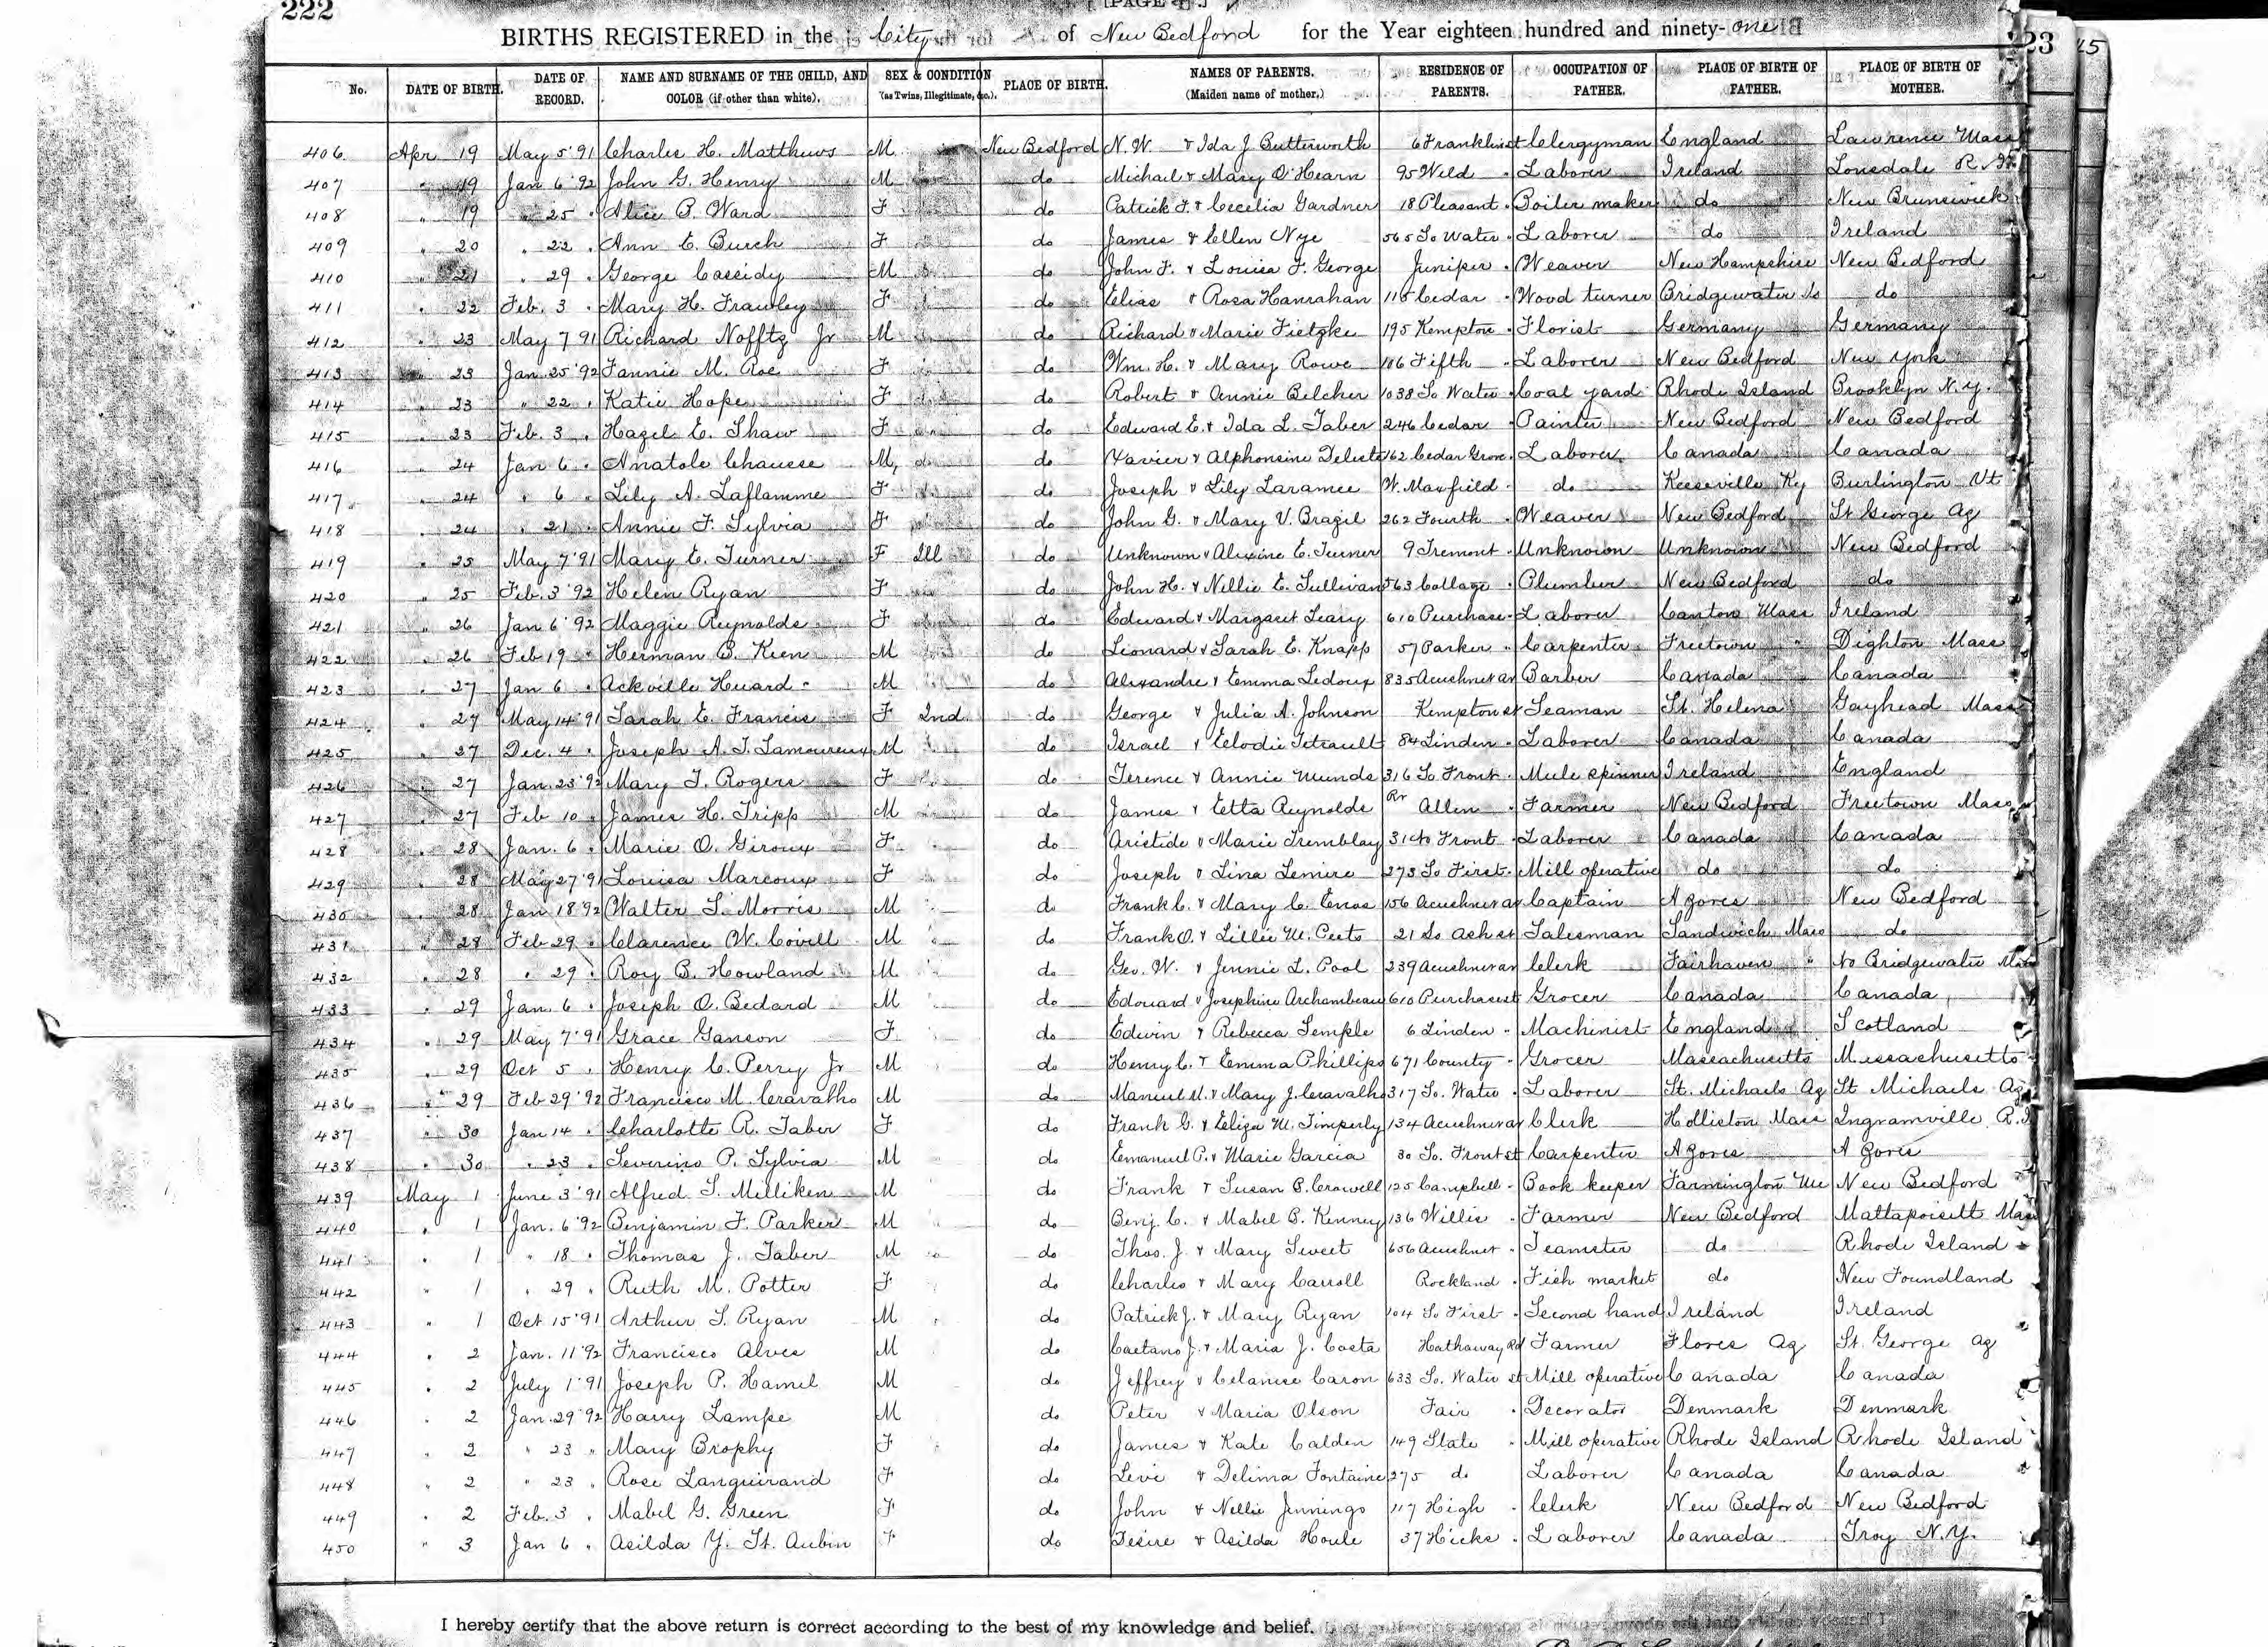 222
[PAGE 4.]
BIRTHS REGISTERED in the City of New Bedford for the Year eighteen hundred and ninety-one
23 15
No. DATE OF BIRTH. DATE OF RECORD. NAME AND SURNAME OF THE CHILD, AND COLOR (if other than white). SEX & CONDITION (as Twins, Illegitimate, &c.). PLACE OF BIRTH. NAMES OF PARENTS. (Maiden name of mother.) RESIDENCE OF PARENTS. OCCUPATION OF FATHER. PLACE OF BIRTH OF FATHER. PLACE OF BIRTH OF MOTHER.
406 Apr 19 May 5 '91 Charles H. Matthews M New Bedford N. W. & Ida J. Butterworth 6 Franklin st Clergyman England Lawrence Mass
407 " 19 Jan 6 '92 John G. Henry M do Michael & Mary O'Hearn 95 Weld " Laborer Ireland Lonsdale R.I.
408 " 19 " 25 " Alice B. Ward F do Patrick F. & Cecelia Gardner 18 Pleasant " Boiler maker do New Brunswick
409 " 20 " 22 " Ann E. Burch F do James & Ellen Nye 565 So Water " Laborer do Ireland
410 " 21 " 29 " George Cassidy M do John F. & Louisa F. George Juniper " Weaver New Hampshire New Bedford
411 " 22 Feb. 3 " Mary H. Frawley F do Elias & Rosa Hanrahan 115 Cedar " Wood turner Bridgewater do
412 " 23 May 7 '91 Richard Nofftz Jr M do Richard & Marie Fietzke 195 Kempton " Florist Germany Germany
413 " 23 Jan 25 '92 Fannie M. Roe F do Wm. H. & Mary Rowe 106 Fifth " Laborer New Bedford New York
414 " 23 " 22 " Katie Hope F do Robert & Annie Belcher 1038 So Water " Coal yard Rhode Island Brooklyn N.Y.
415 " 23 Feb. 3 " Hazel E. Shaw F do Edward E. & Ida L. Taber 246 Cedar " Painter New Bedford New Bedford
416 " 24 Jan 6 " Anatole Chausse M do Xavier & Alphonsine Deliste 162 Cedar Grove " Laborer Canada Canada
417 " 24 " 6 " Lily A. Laflamme F do Joseph & Lily Laramee W. Maxfield " do Keeseville Ky Burlington Vt
418 " 24 " 21 " Annie F. Sylvia F do John G. & Mary V. Brazil 262 Fourth " Weaver New Bedford St George Az
419 " 25 May 7 '91 Mary E. Turner F Ill do Unknown & Alexine E. Turner 9 Tremont " Unknown Unknown New Bedford
420 " 25 Feb. 3 '92 Helen Ryan F do John H. & Nellie E. Sullivan 563 Cottage " Plumber New Bedford do
421 " 26 Jan 6 '92 Maggie Reynolds F do Edward & Margaret Leary 610 Purchase " Laborer Canton Mass Ireland
422 " 26 Feb 19 " Herman B. Keen M do Leonard & Sarah E. Knapp 57 Parker " Carpenter Freetown " Dighton Mass
423 " 27 Jan 6 " Ackville Huard M do Alexandre & Emma Ledoux 835 Acushnet av Barber Canada Canada
424 " 27 May 14 '91 Sarah E. Francis F Ind. do George & Julia A. Johnson Kempton st Seaman St. Helena Gayhead Mass
425 " 27 Dec. 4 " Joseph A. T. Lamoureux M do Israel & Elodie Tetrault 84 Linden " Laborer Canada Canada
426 " 27 Jan. 23 '92 Mary T. Rogers F do Terence & Annie Munds 316 So Front " Mule spinner Ireland England
427 " 27 Feb 10 " James H. Tripp M do James & Etta Reynolds Rr Allen " Farmer New Bedford Freetown Mass
428 " 28 Jan. 6 " Marie O. Giroux F do Aristide & Marie Tremblay 31 No Front " Laborer Canada Canada
429 " 28 May 27 '91 Louisa Marcoux F do Joseph & Lina Lemire 273 So First " Mill operative do do
430 " 28 Jan 18 '92 Walter S. Morris M do Frank C. & Mary C. Enos 156 Acushnet av Captain Azores New Bedford
431 " 28 Feb 29 " Clarence W. Covell M do Frank O. & Lillie M. Peets 21 So Ash st Salesman Sandwich Mass do
432 " 28 " 29 " Roy B. Howland M do Geo. W. & Jennie L. Pool 239 Acushnet av Clerk Fairhaven " No Bridgewater
433 " 29 Jan. 6 " Joseph O. Bedard M do Edouard & Josephine Archambeau 610 Purchase st Grocer Canada Canada
434 " 29 May 7 '91 Grace Ganson F do Edwin & Rebecca Temple 6 Linden " Machinist England Scotland
435 " 29 Oct 5 " Henry C. Perry Jr M do Henry C. & Emma Phillips 671 County " Grocer Massachusetts Massachusetts
436 " 29 Feb 29 '92 Francisco M. Cravalho M do Manuel M. & Mary J. Cravalho 317 So. Water " Laborer St. Michaels Az St Michaels Az
437 " 30 Jan 14 " Charlotte R. Taber F do Frank G. & Eliza M. Timperly 134 Acushnet av Clerk Holliston Mass Ingramville R.I
438 " 30 " 23 " Severino P. Sylvia M do Emanuel P. & Marie Garcia 30 So. Front st Carpenter Azores Azores
439 May 1 June 3 '91 Alfred S. Milliken M do Frank & Susan B. Crowell 125 Campbell " Book keeper Farmington Me New Bedford
440 " 1 Jan. 6 '92 Benjamin F. Parker M do Benj. C. & Mabel B. Kenney 136 Willis " Farmer New Bedford Mattapoisett Mass
441 " 1 " 18 " Thomas J. Taber M do Thos. J. & Mary Sweet 656 Acushnet " Teamster do Rhode Island
442 " 1 " 29 " Ruth M. Potter F do Charles & Mary Carroll Rockland " Fish market do New Foundland
443 " 1 Oct 15 '91 Arthur S. Ryan M do Patrick J. & Mary Ryan 104 So First " Second hand Ireland Ireland
444 " 2 Jan. 11 '92 Francisco Alves M do Caetano J. & Maria J. Costa Hathaway Rd Farmer Flores Az St. George Az
445 " 2 July 1 '91 Joseph P. Hamel M do Jeffrey & Celanise Caron 633 So. Water st Mill operative Canada Canada
446 " 2 Jan. 29 '92 Harry Lampe M do Peter & Maria Olson Fair " Decorator Denmark Denmark
447 " 2 " 23 " Mary Brophy F do James & Kate Calden 149 State " Mill operative Rhode Island Rhode Island
448 " 2 " 23 " Rose Languirand F do Levi & Delima Fontaine 275 do Laborer Canada Canada
449 " 2 Feb. 3 " Mabel G. Green F do John & Nellie Jennings 117 High " Clerk New Bedford New Bedford
450 " 3 Jan 6 " Asilda Y. St. Aubin F do Desire & Asilda Houle 37 Hicks " Laborer Canada Troy N.Y.
I hereby certify that the above return is correct according to the best of my knowledge and belief.